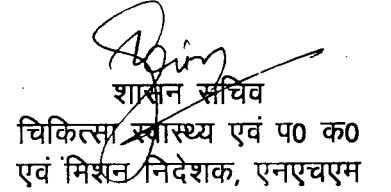 शासन सचिव
चिकित्सा स्वास्थ्य एवं प0 क0
एवं मिशन निदेशक, एनएचएम